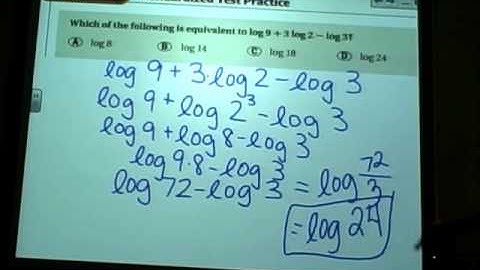 Test Practice
Which of the following is equivalent to log 9 + 3 log 2 − log 3?
A log 8 B log 14 C log 18 D log 24
log 9 + 3·log 2 − log 3
log 9 + log 2³ − log 3
log 9 + log 8 − log 3
log 9·8 − log 3
log 72 − log 3 = log 72/3
= log 24